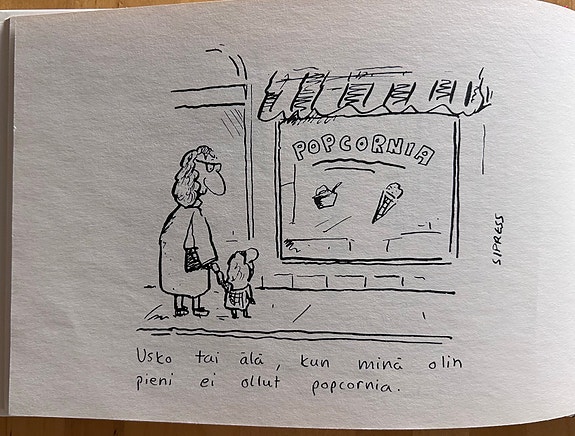 POPCORNIA
SIPRESS
Usko tai älä, kun minä olin
pieni ei ollut popcornia.